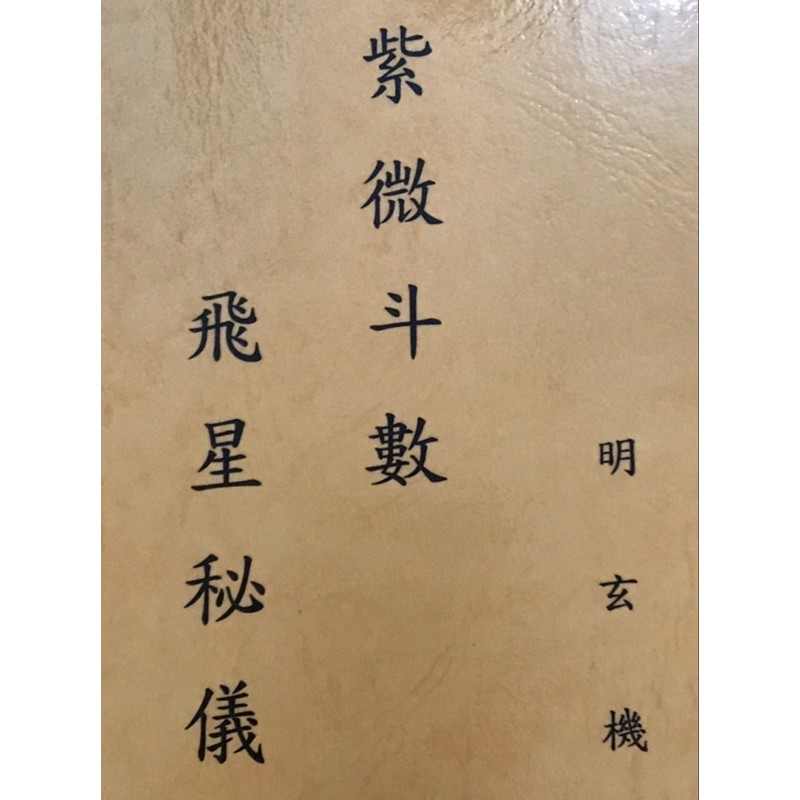 明玄機
紫微斗數
飛星秘儀